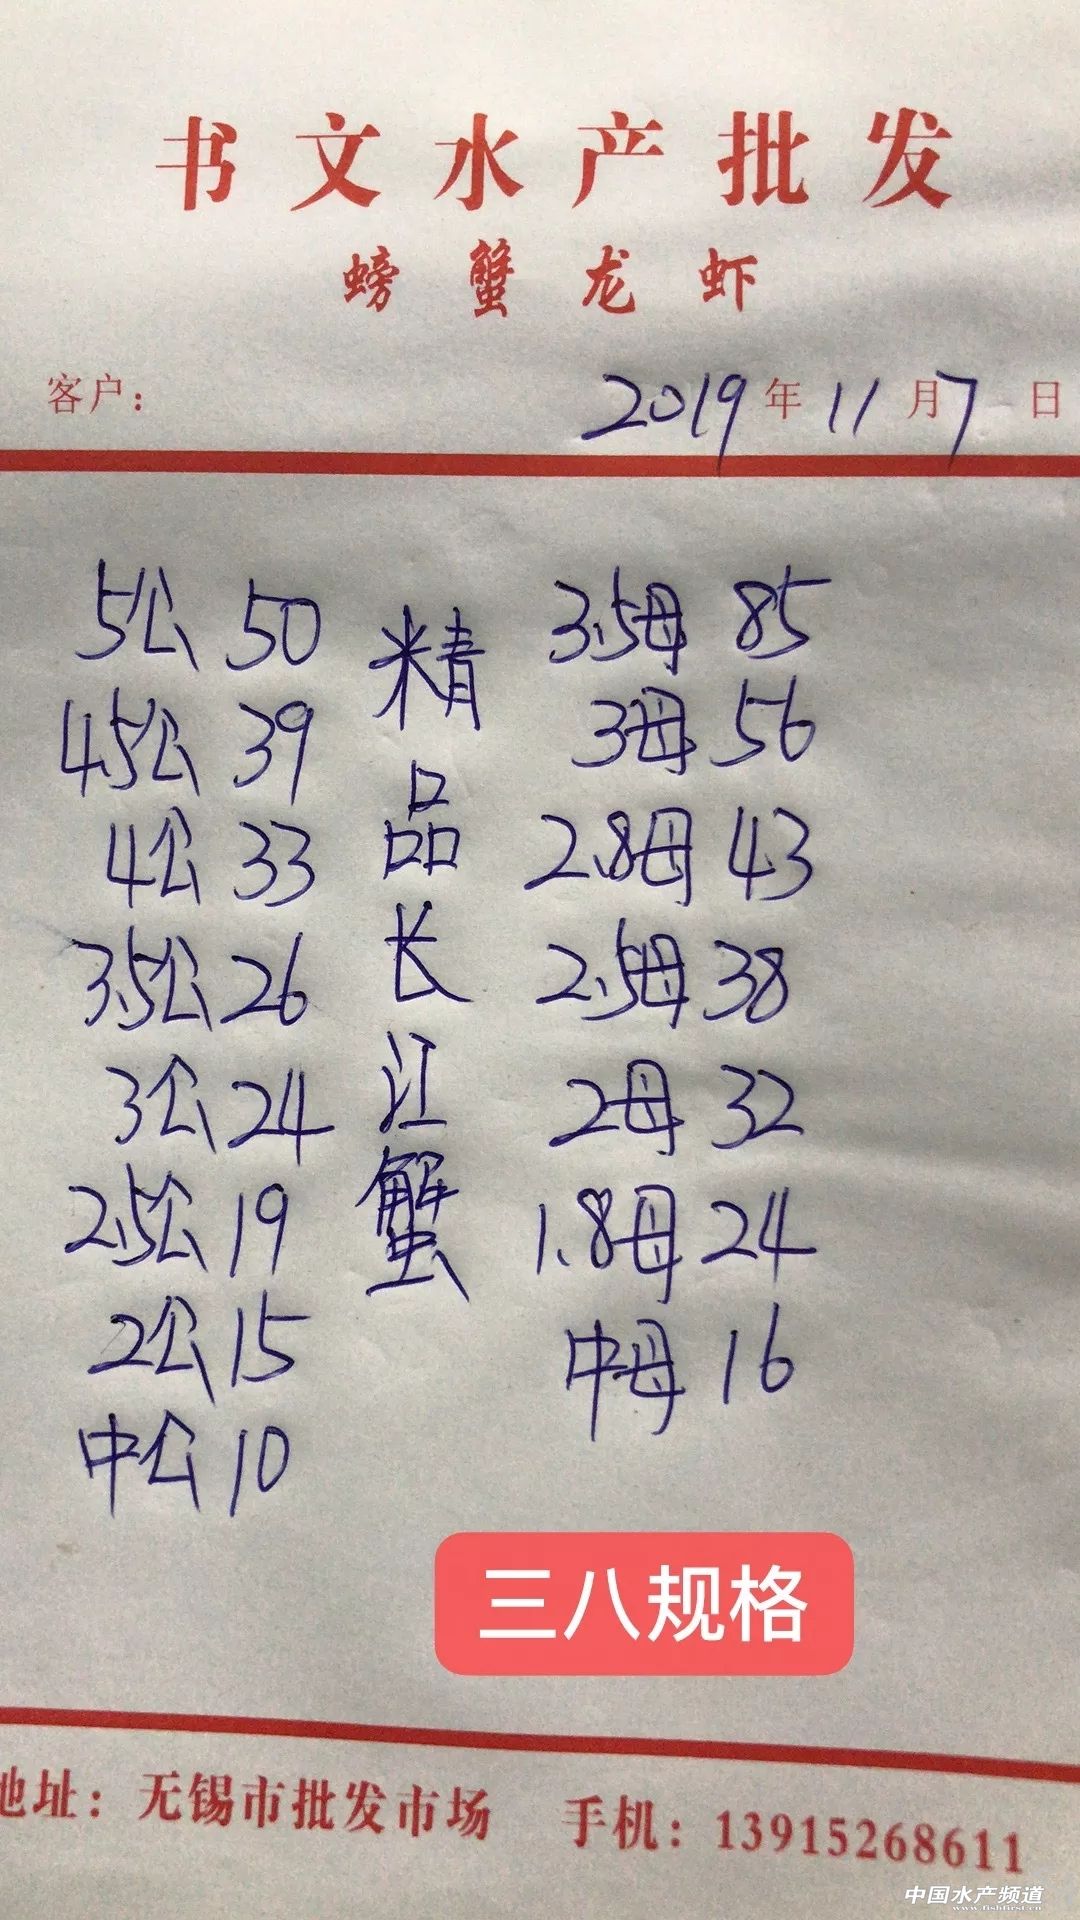 书文水产批发
螃蟹龙虾
客户：
2019年11月7日
5公 50
4.5公 39
4公 33
3.5公 26
3公 24
2.5公 19
2公 15
中公 10
精品长江蟹
3.5母 85
3母 56
2.8母 43
2.5母 38
2母 32
1.8母 24
中母 16
三八规格
地址：无锡市批发市场 手机：13915268611
中国水产频道
www.fishfirst.cn